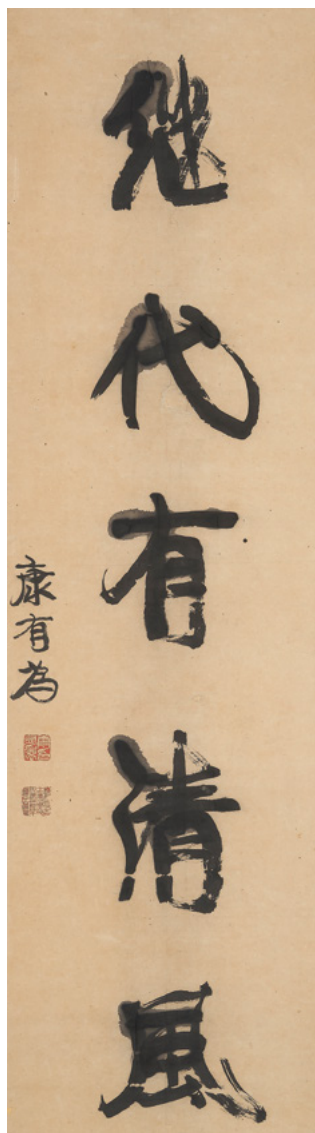 继代有清風
康有為